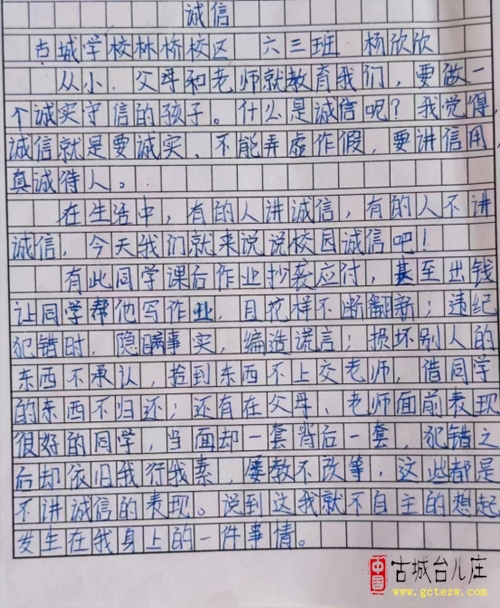 诚信
古城学校林桥校区 六三班 杨欣欣
从小,父母和老师就教育我们,要做一
个诚实守信的孩子。什么是诚信呢?我觉得,
诚信就是要诚实、不能弄虚作假,要讲信用,
真诚待人。
在生活中,有的人讲诚信,有的人不讲
诚信,今天我们就来说说校园诚信吧!
有此同学课后作业抄袭应付,甚至出钱
让同学帮他写作业,且花样不断翻新;违纪
犯错时,隐瞒事实,编造谎言;损坏别人的
东西不承认,捡到东西不上交老师,借同学
的东西不归还;还有在父母、老师面前表现
很好的同学,当面却一套背后一套,犯错之
后却依旧我行我素,屡教不改等,这些都是
不讲诚信的表现。说到这我就不自主的想起
发生在我身上的一件事情。
中国 古城台儿庄
www.gctezw.com